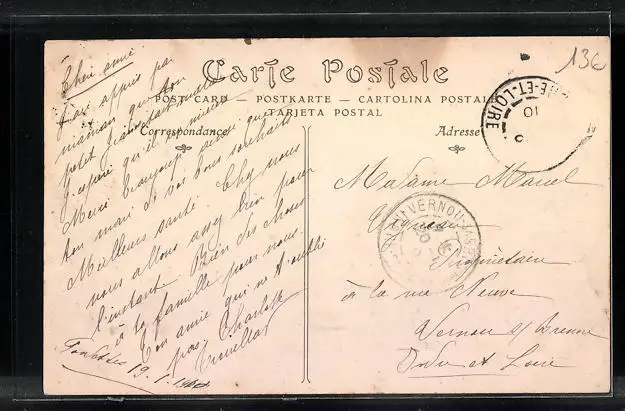 136
Carte Postale
POST-CARD — POSTKARTE — CARTOLINA POSTALE
TARJETA POSTAL
Correspondance
Adresse
Chère amie
J'ai appris par
maman que ton
petit Jean était
J'espère qu'il va mieux
Merci beaucoup ainsi que
ton mari de vos bons souhaits
Meilleure santé. Chez nous
nous allons assez bien pour
l'instant. Bien des choses
à ta famille pour nous.
Ton amie qui ne t'oublie
pas Charlotte
19-1-
Madame Marcel
Vigneau
Propriétaire
à la rue Neuve
Vernou s/ Brenne
Indre et Loire
RE-ET-LOIRE
10
VERNOU